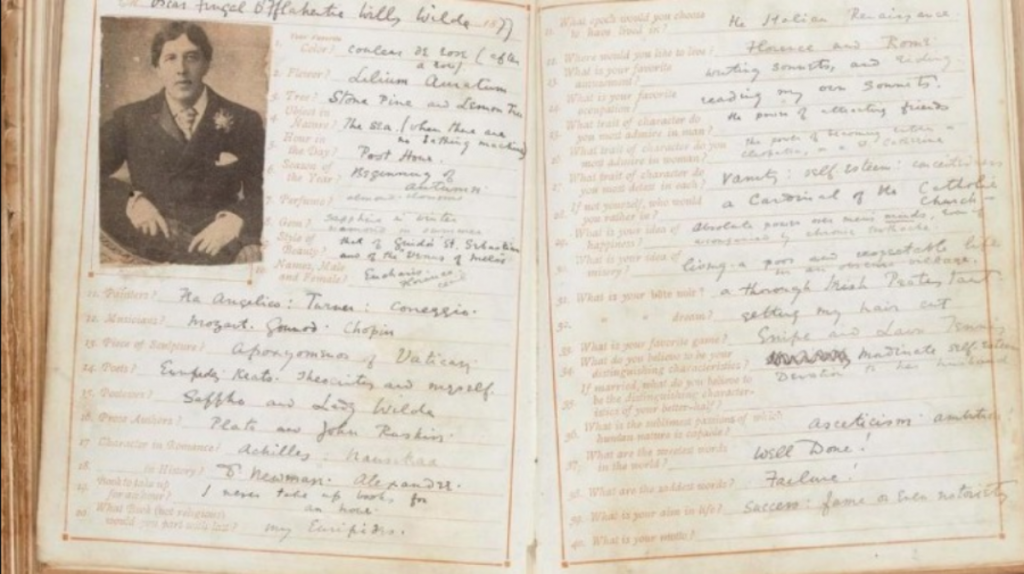 Oscar Fingal O'Flahertie Wills Wilde 1877
1. Your Favorite
Color? couleur de rose (of
a rose)
2. Flower? Lilium Auratum
3. Tree? Stone Pine and Lemon Tree
4. Object in
Nature? The Sea (when there are
no bathing machines
5. Hour in
the Day? Post Hour.
6. Season of
the Year? Beginning of
autumn
7. Perfume? almond-blossom
8. Gem? Sapphire in winter
diamond in summer
9. Style of
Beauty? that of Guido's St. Sebastian
and of the Venus of Melos
10. Names, Male
and Female?
11. Painters? Fra Angelico: Turner: Correggio.
12. Musicians? Mozart. Gounod. Chopin
13. Piece of Sculpture? Apoxyomenos of Vatican
14. Poets? Euripides, Keats. Theocritus and myself.
15. Poetesses? Sappho and Lady Wilde
16. Prose Authors? Plato and John Ruskin.
17. Character in Romance? Achilles. Nausikaa
18. in History? Dr Newman. Alexander.
19. Book to take up
for an hour? I never take up books for
an hour.
20. What Book (not religious)
would you part with last? my Euripides.
21. What epoch would you choose
to have lived in? the Italian Renaissance.
22. Where would you like to live? Florence and Rome
23. What is your favorite
amusement? writing sonnets, and riding.
24. What is your favorite
occupation? reading my own sonnets.
25. What trait of character do
you most admire in man? the power of attracting friends
26. What trait of character do you
most admire in woman? the power of becoming either a
Cleopatra, or a St Catherine
27. What trait of character do
you most detest in each? Vanity: self esteem: conceitedness
28. If not yourself, who would
you rather be? a Cardinal of the Catholic
Church
29. What is your idea of
happiness? Absolute power over men's minds, even if
accompanied by chronic toothache.
30. What is your idea of
misery? living a poor and respectable life
in an obscure village.
31. What is your bête noir? a thorough Irish Protestant
32. " " " dream? getting my hair cut
33. What is your favorite game? Snipe and Lawn Tennis
34. What do you believe to be your
distinguishing characteristics? inordinate self esteem
35. If married, what do you believe to
be the distinguishing character-
istics of your better-half? Devotion to her husband
36. What is the sublimest passion of which
human nature is capable? asceticism: ambition
37. What are the sweetest words
in the world? Well Done!
38. What are the saddest words? Failure!
39. What is your aim in life? Success: fame or even notoriety
40. What is your motto?